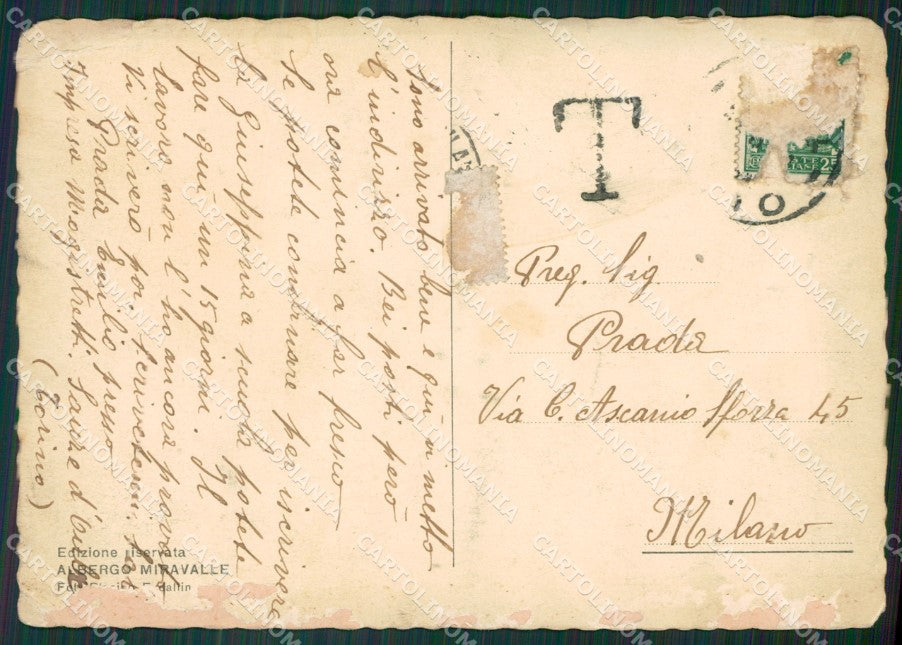 Sono arrivato bene e qui vi metto
l'indirizzo. Bei posti però
ora comincia a far fresco
Se potete combinare per iscrivere
la Giuseppina a scuola potete
fare qui un 15 giorni. Il
lavoro non l'ho ancora provato
Vi scriverò poi, scrivetemi.
Prada Emilio presso
Impresa Magistretti. Sauze d'Oulx
(Torino)
Edizione riservata
ALBERGO MIRAVALLE
T
Preg. Sig.
Prada
Via C. Ascanio Sforza 45
Milano
CARTOLINOMANIA